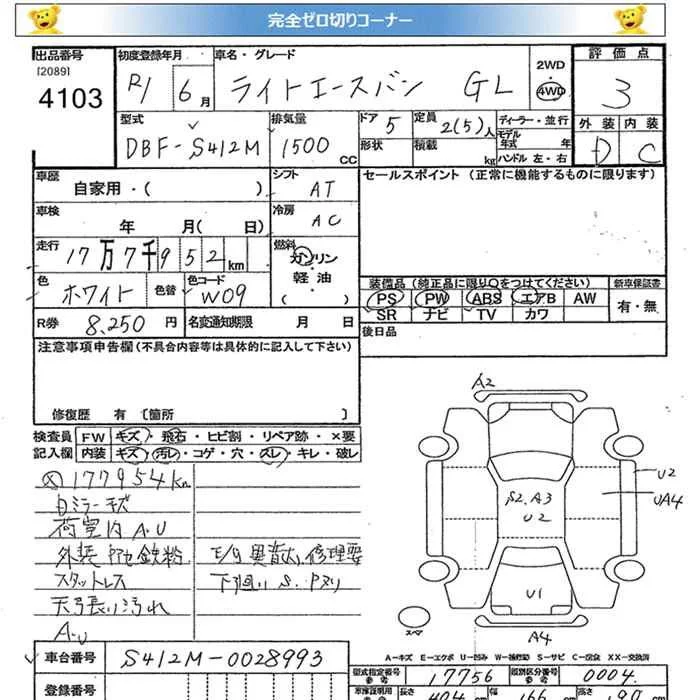 完全ゼロ切りコーナー
出品番号 初度登録年月 車名・グレード 2WD・4WD 評価点
[2089]
4103 R1 6月 ライトエースバン GL 3
型式 排気量 ドア 5 定員 2(5)人 ディーラー・並行 外装 内装
DBF-S412M 1500cc 形状 積載 kg モデル年式 年 D C
ハンドル 左・右
車歴 自家用・( ) シフト AT セールスポイント (正常に機能するものに限ります)
車検 年 月( 日) 冷房 AC
走行 17万7千952km 燃料 ガソリン・軽油・( )
色 ホワイト 色替 色コード W09 装備品 (純正品に限り○をつけてください) 新車保証書
PS PW ABS エアB AW 有・無
R券 8,250円 名変通知期限 月 日 SR ナビ TV カワ
後日品
注意事項申告欄 (不具合内容等は具体的に記入して下さい)
修復歴 有 [箇所 ]
検査員 FW キズ・飛石・ヒビ割・リペア跡・×要
記入欄 内装 キズ・汚レ・コゲ・穴・スレ・キレ・破レ
177954km
ミラーキズ
荷室内 A.U
外装 鉄粉
スタットレス
汚れ
A.U
修理要
下廻り S.
A2
U2
UA4
S2.A3
U2
U1
A4
スペア
A-キズ E-エクボ U-凹み W-補修跡 S-サビ C-腐食 XX-交換済
車台番号 S412M-0028993
型式指定番号 参考 17756 類別区分番号 参考 0004
登録番号 車庫証明用 長さ 404cm 幅 166cm 高さ 190